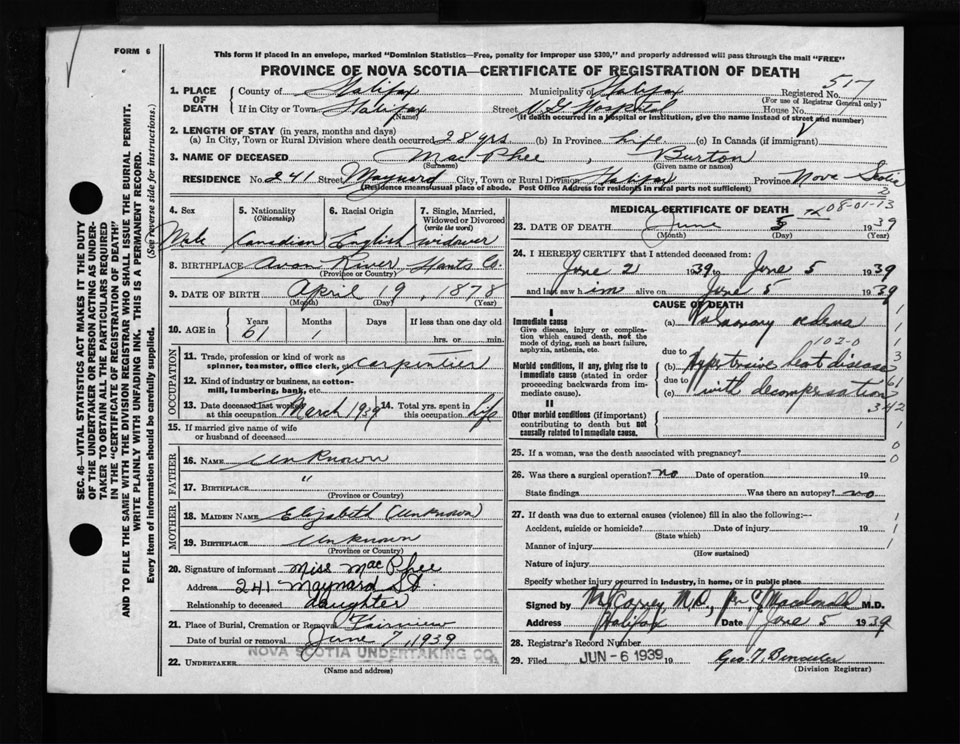 FORM 6
This form if placed in an envelope, marked "Dominion Statistics—Free, penalty for improper use $300," and properly addressed will pass through the mail "FREE"
PROVINCE OF NOVA SCOTIA—CERTIFICATE OF REGISTRATION OF DEATH
517
1. PLACE OF DEATH
County of Halifax Municipality of Halifax Registered No.
(For use of Registrar General only)
If in City or Town Halifax Street V G Hospital House No.
(Name) (If death occurred in a hospital or institution, give the name instead of street and number)
2. LENGTH OF STAY (in years, months and days)
(a) In City, Town or Rural Division where death occurred 28 yrs (b) In Province Life (c) In Canada (if immigrant)
3. NAME OF DECEASED MacPhee, Burton
(Surname) (Given name or names)
RESIDENCE No. 241 Street Maynard City, Town or Rural Division Halifax Province Nova Scotia
(Residence means usual place of abode. Post Office Address for residents in rural parts not sufficient)
4. Sex
5. Nationality (Citizenship)
6. Racial Origin
7. Single, Married, Widowed or Divorced (write the word)
Male Canadian English widower
8. BIRTHPLACE Avon River Hants Co.
(Province or Country)
9. DATE OF BIRTH April 19, 1878
(Month) (Day) (Year)
10. AGE in
Years Months Days If less than one day
61 1 hrs. or min.
OCCUPATION
11. Trade, profession or kind of work as spinner, teamster, office clerk, etc. carpentier
12. Kind of industry or business, as cotton-mill, lumbering, bank, etc.
13. Date deceased last worked at this occupation March 1939 14. Total yrs. spent in this occupation Life
15. If married give name of wife or husband of deceased
FATHER
16. NAME Unknown
17. BIRTHPLACE "
(Province or Country)
MOTHER
18. MAIDEN NAME Elizabeth (Unknown)
19. BIRTHPLACE Unknown
(Province or Country)
20. Signature of informant Miss MacPhee
Address 241 Maynard St.
Relationship to deceased daughter
21. Place of Burial, Cremation or Removal Fairview
Date of burial or removal June 7, 1939
NOVA SCOTIA UNDERTAKING CO.
22. UNDERTAKER
(Name and address)
MEDICAL CERTIFICATE OF DEATH
08-01-13
23. DATE OF DEATH June 5 1939
(Month) (Day) (Year)
24. I HEREBY CERTIFY that I attended deceased from:
June 2 1939 to June 5 1939
and last saw him alive on June 5 1939
CAUSE OF DEATH
I
Immediate cause
Give disease, injury or complication which caused death, not the mode of dying, such as heart failure, asphyxia, asthenia, etc.
(a) Pulmonary oedema
102-0
due to
Morbid conditions, if any, giving rise to immediate cause (stated in order proceeding backwards from immediate cause).
(b) Hypertensive heart disease
due to
(c) with decompensation
342
II
Other morbid conditions (if important) contributing to death but not causally related to immediate cause.
25. If a woman, was the death associated with pregnancy?
26. Was there a surgical operation? no Date of operation 19
State findings Was there an autopsy? no
27. If death was due to external causes (violence) fill in also the following:—
Accident, suicide or homicide? Date of injury 19
(State which)
Manner of injury
(How sustained)
Nature of injury
Specify whether injury occurred in industry, in home, or in public place
Signed by M.D., Per Macdonald M.D.
Address Halifax Date June 5 1939
28. Registrar's Record Number
29. Filed JUN - 6 1939 19
Geo. T.
(Division Registrar)
SEC. 46—VITAL STATISTICS ACT MAKES IT THE DUTY
OF THE UNDERTAKER OR PERSON ACTING AS UNDER-
TAKER TO OBTAIN ALL THE PARTICULARS REQUIRED
IN THE "CERTIFICATE OF REGISTRATION OF DEATH"
AND TO FILE THE SAME WITH THE DIVISION REGISTRAR WHO SHALL ISSUE THE BURIAL PERMIT.
WRITE PLAINLY WITH UNFADING INK. THIS IS A PERMANENT RECORD.
Every item of information should be carefully supplied. (See reverse side for instructions.)